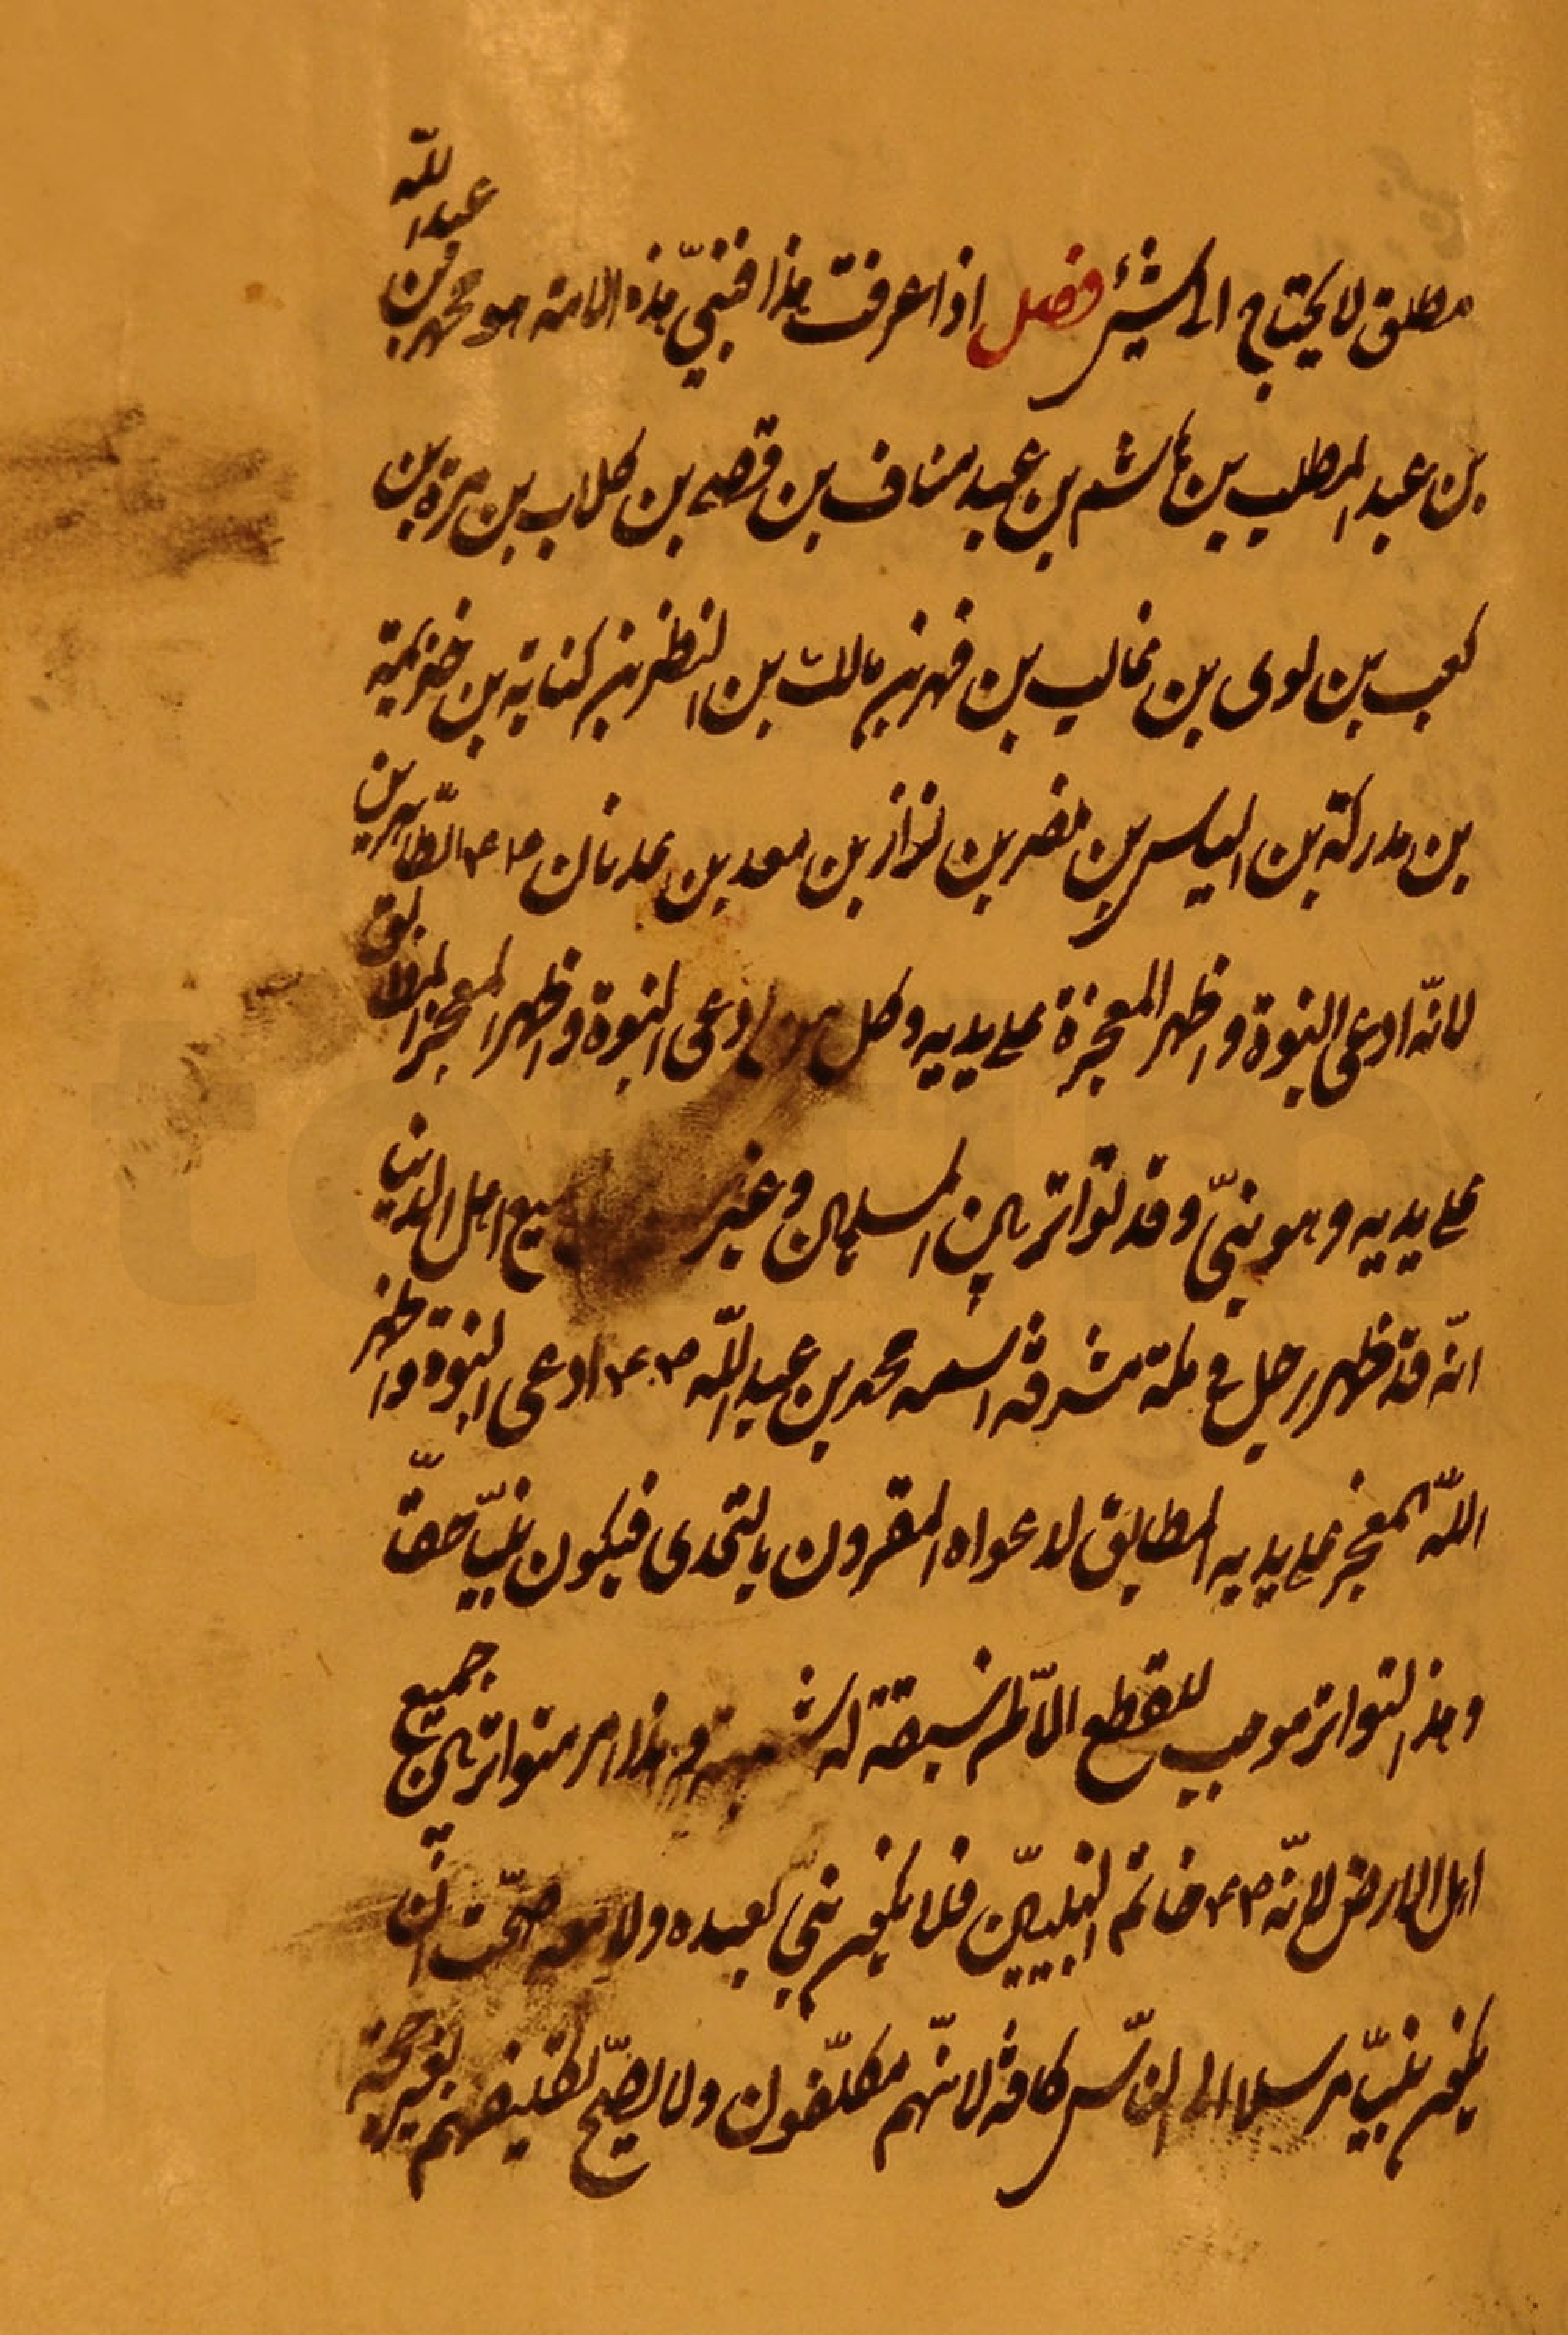 مطلق لا يحتاج الى شيئ فصل اذا عرفت هذا فنبيّ هذه الامة هو محمد بن عبد اللّه
بن عبد المطلب بن هاشم بن عبد مناف بن قصى بن كلاب بن مرة بن
كعب بن لوى بن غالب بن فهر بن مالك بن النظر بن كنانة بن خزيمة
بن مدركة بن الياس بن مضر بن نزار بن معد بن عدنان الطّاهرين
لانّه ادعى النبوة و اظهر المعجزة على يديه و كل ادعى النبوة و اظهر المعجز المطابق
على يديه و هو نبىّ و قد تواتر بين المسلمين و غير اهل الدنيا
انّه قد ظهر رجل فى مكة مشرفه اسمه محمد بن عبد اللّه ادعى النبوة و اظهر
اللّه المعجز على يديه المطابق لدعواه المقرون بالتحدى فيكون نبيّا حقّا
و هذا التواتر موجب للقطع لم سبقة له شبهة و هذا امر متواتر بين جميع
اهل الارض لانّه خاتم النبيّين فلا يكون نبىّ بعده و لا معه صحّت انّ
يكون نبيّا مرسلا الى النّاس كافة لانّهم مكلّفون و لا يصحّ تكليفهم بغير حجة